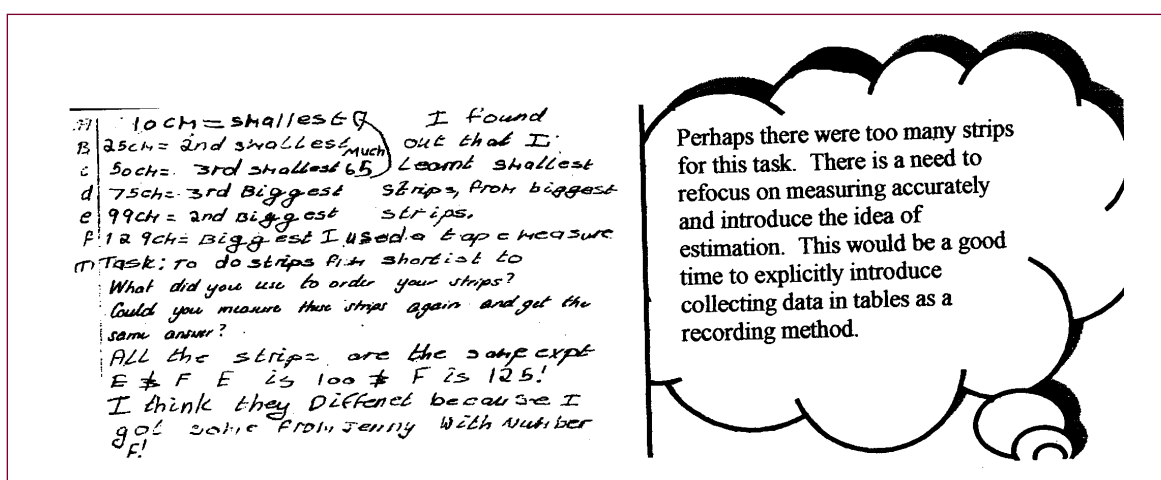 10cm = smallest
I found
B 25cm = 2nd smallest
out that I
c 50cm = 3rd smallest
Much
65
Learnt smallest
d 75cm = 3rd Biggest strips, from biggest
e 99cm = 2nd Biggest strips.
F 129cm = Biggest I used a tape measure
Task: To do strips from shortist to
What did you use to order your strips?
Could you measure these strips again and get the
same answer?
All the strips are the same expt
E & F E is 100 & F is 125!
I think they Diffenct because I
got some from Jenny with Number
F!
Perhaps there were too many strips
for this task. There is a need to
refocus on measuring accurately
and introduce the idea of
estimation. This would be a good
time to explicitly introduce
collecting data in tables as a
recording method.